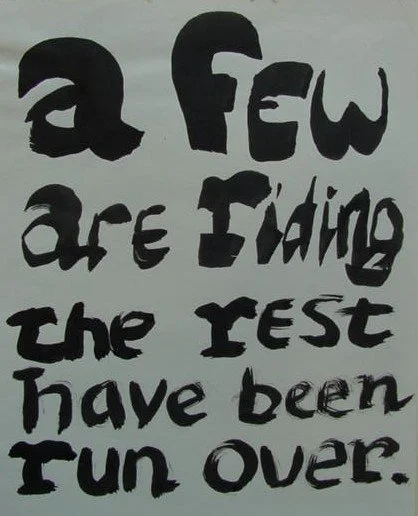 a few
are riding
the rest
have been
run over.